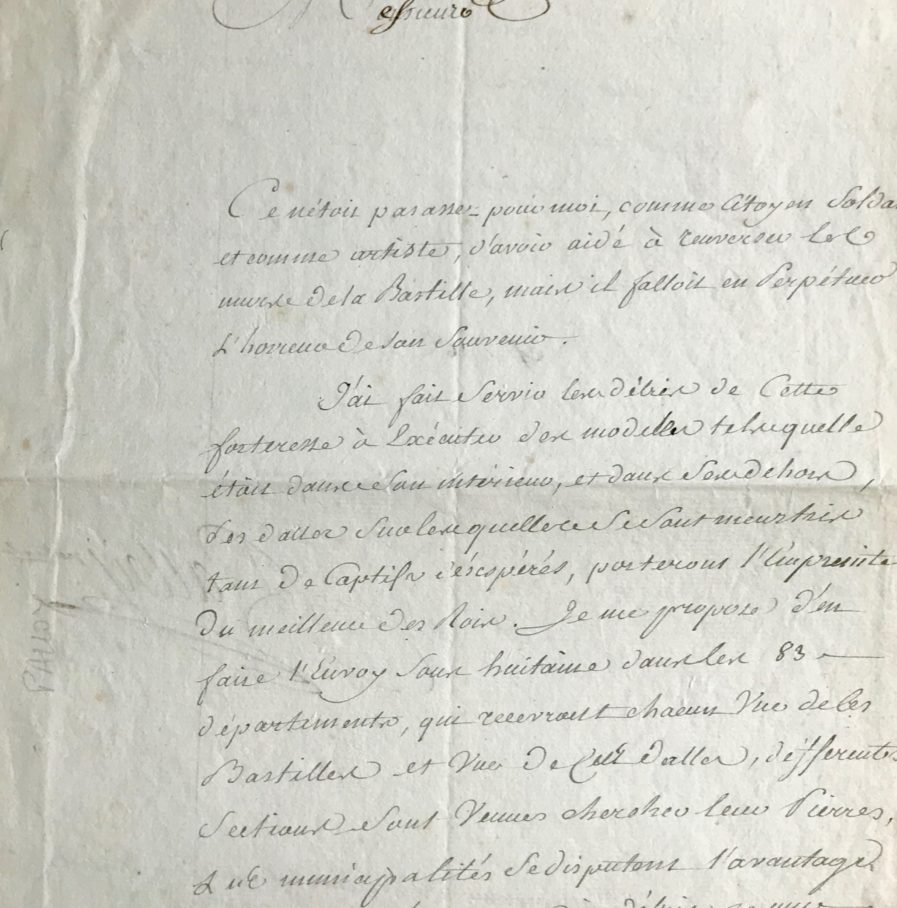 Messieurs
Ce n'étoit pas assez pour moi, comme Citoyen Solda
et comme artiste, d'avoir aidé à renverser les
murs de la Bastille, mais il falloit en Perpétuer
L'horreur de son Souvenir.
J'ai fait Servir les débris de Cette
forteresse à Exécuter des modelles tels quelle
étoit dans son intérieur, et dans ses dehors,
des dalles sur lesquelles se sont meurtris
tans de Captifs désespérés, porterons l'Empreinte
du meilleur des Rois. Je me propose d'en
faire l'Envoy sous huitaine dans les 83
départements, qui recevront chacun Une de Ces
Bastilles et Une de Ces dalles, différentes
Sections sont Venues chercher leur Pierres,
Les municipalités se disputent l'avantage
débris
PALLOY